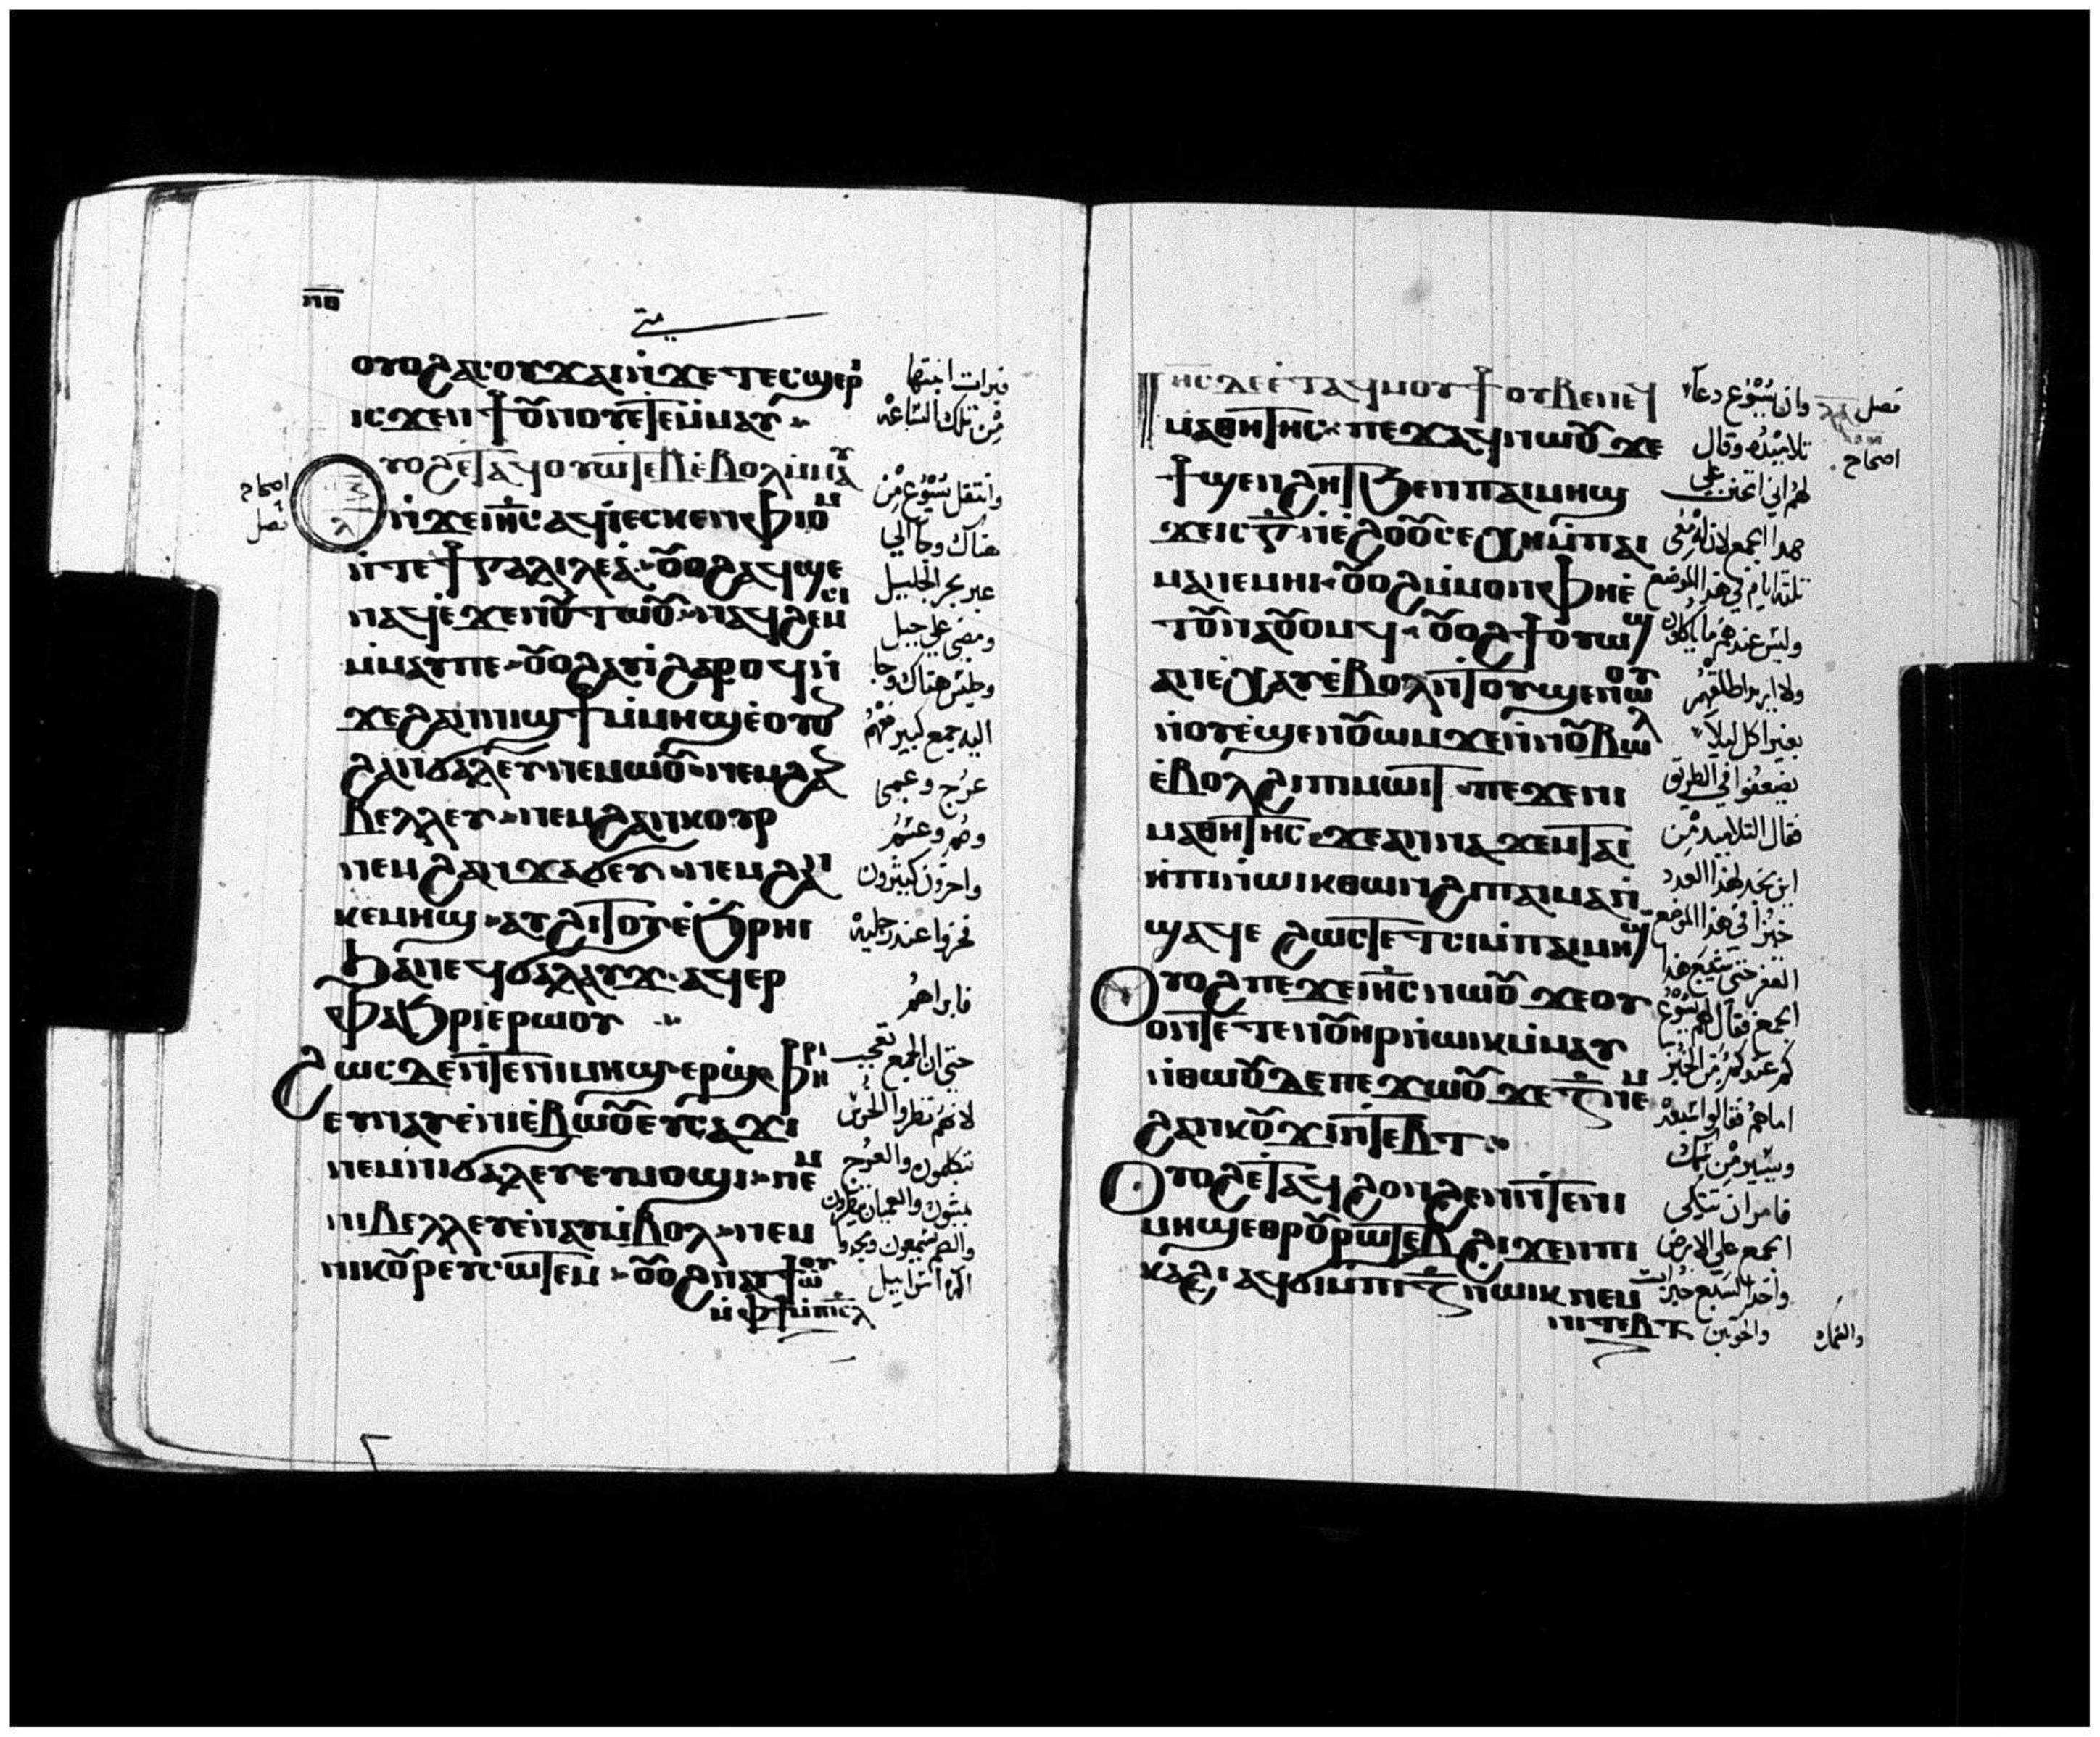 ⲡⲑ
متي
ⲟⲩⲟϩ ⲁⲥⲟⲩϫⲁⲓ ⲛ̇ϫⲉ ⲧⲉⲥϣⲉⲣⲓ
ⲓⲥϫⲉⲛ ϯⲟⲩⲛⲟⲩ ⲉⲧⲉⲙⲙⲁⲩ
ⲟⲩⲟϩ ⲉⲧⲁϥⲟⲩⲱⲧⲉⲃ ⲉ̇ⲃⲟⲗ ⲙ̇ⲙⲁⲩ
ⲛ̇ϫⲉ ⲓⲏⲥ ⲁϥⲓ̇ ⲉⲥⲕⲉⲛ ⲫⲓⲟⲙ
ⲛ̇ⲧⲉ ϯⲅⲁⲗⲓⲗⲉⲁ̇ ⲟⲩⲟϩ ⲁϥϣⲉ
ⲛⲁϥ ⲉ̇ϫⲉⲛ ⲟⲩⲧⲱⲟⲩ ⲛⲁϥϩⲉⲙⲥⲓ
ⲙ̇ⲙⲁⲩ ⲡⲉ ⲟⲩⲟϩ ⲁⲩⲓ̇ ϩⲁⲣⲟϥ ⲛ̇
ϫⲉ ϩⲁⲛⲛⲓϣϯ ⲙ̇ⲙⲏϣ ⲉ̇ⲟⲩⲟⲛ
ϩⲁⲛϭⲁⲗⲉⲩ ⲛⲉⲙⲱⲟⲩ ⲛⲉⲙ ϩⲁⲛ
ⲃⲉⲗⲗⲉⲩ ⲛⲉⲙ ϩⲁⲛⲕⲟⲩⲣ
ⲛⲉⲙ ϩⲁⲛϫⲁϭⲉⲩ ⲛⲉⲙ ϩⲁⲛ
ⲕⲉⲙⲏϣ ⲁⲩϩⲓⲧⲟⲩ ⲉ̇ϧⲣⲏⲓ
ϧⲁ ⲛⲉϥϭⲁⲗⲁⲩϫ ⲁϥⲉⲣ
ⲫⲁϧⲣⲓ ⲉⲣⲱⲟⲩ
ϩⲱⲥⲇⲉ ⲛ̇ⲧⲉ ⲡⲓⲙⲏϣ ⲉⲣϣⲫⲏⲣⲓ
ⲉⲩⲛⲁⲩ ⲉ̇ⲛⲓⲉ̇ⲃⲱⲟⲩ ⲉⲩⲥⲁϫⲓ
ⲛⲉⲙ ⲛⲓϭⲁⲗⲉⲩ ⲉⲩⲙⲟϣⲓ ⲛⲉⲙ
ⲛⲓⲃⲉⲗⲗⲉⲩ ⲉⲩⲛⲁⲩ ⲙ̇ⲃⲟⲗ ⲛⲉⲙ
ⲛⲓⲕⲟⲩⲣ ⲉⲩⲥⲱⲧⲉⲙ ⲟⲩⲟϩ ⲛⲁⲩϯⲱⲟⲩ
ⲙ̇ⲫϯ ⲙ̇ⲡⲓⲥⲗ
اصحاح
فصل
ⲗ
فبرات ابنتها
من تلك الساعة
وانتقل يسوع من
هناك وجا الي
عبر بحر الجليل
ومضي علي جبل
وجلس هناك وجا
اليه جمع كبير معهم
عرج وعمي
وصم وعسم
واخرون كثيرون
فخروا عند رجليه
فابراهم
حتي ان الجمع تعجب
لانهم نظروا الخرس
يتكلمون والعرج
يمشون والعميان ينظرون
والصم يسمعون ومجدوا
اله اسراييل
ⲓⲏⲥ ⲇⲉ ⲉ̇ⲧⲁϥⲙⲟⲩϯ ⲟⲩⲃⲉ ⲛⲉϥ
ⲙⲁⲑⲏⲧⲏⲥ ⲡⲉϫⲁϥ ⲛⲱⲟⲩ ϫⲉ
ϯϣⲉⲛϩⲏⲧ ϧⲉⲛ ⲡⲁⲓⲙⲏϣ
ϫⲉ ⲓⲥ ⲅ̅ ⲛ̇ⲉ̇ϩⲟⲟⲩ ⲥⲉⲭⲏ ⲙ̇ⲡⲁⲓ
ⲙⲁ ⲛⲉⲙⲏⲓ ⲟⲩⲟϩ ⲙ̇ⲙⲟⲛ ⲫⲏ ⲉ̇
ⲧⲟⲩⲛⲁⲟⲩⲟⲙϥ ⲟⲩⲟϩ ϯⲟⲩⲱϣ
ⲁⲛ ⲉ̇ⲭⲁⲩ ⲉ̇ⲃⲟⲗ ⲛ̇ⲧⲟⲩϣⲉⲛⲱⲟⲩ
ⲛ̇ⲟⲩⲉ̇ϣⲉⲛ ⲟⲩⲱⲙ ϫⲉ ⲛ̇ⲛⲟⲩⲃⲱⲗ
ⲉ̇ⲃⲟⲗ ϩⲓ ⲡⲓⲙⲱⲓⲧ ⲡⲉϫⲉ ⲛⲓ
ⲙⲁⲑⲏⲧⲏⲥ ϫⲉ ⲁⲛⲛⲁϫⲉⲙ ⲧⲁⲓ
ⲏ̇ⲡⲓ ⲛ̇ⲱⲓⲕ ⲑⲱⲛ ϩⲓ ⲡⲁⲓⲙⲁ ⲛ̇
ϣⲁϥⲉ ϩⲱⲥⲧⲉ ⲧⲥⲓ ⲙ̇ⲡⲁⲓⲙⲏϣ
ⲟⲩⲟϩ ⲡⲉϫⲉ ⲓⲏⲥ ⲛⲱⲟⲩ ϫⲉ ⲟⲩ
ⲟⲛⲧⲉⲧⲉⲛ ⲟⲩⲏⲣ ⲛ̇ⲱⲓⲕ ⲙ̇ⲙⲁⲩ
ⲛ̇ⲑⲱⲟⲩ ⲇⲉ ⲡⲉϫⲱⲟⲩ ϫⲉ ⲍ̅ ⲛⲉⲙ
ϩⲁⲛⲕⲟⲩϫⲓ ⲛ̇ⲧⲉⲃⲧ
ⲟⲩⲟϩ ⲉ̇ⲧⲁϥϩⲟⲛϩⲉⲛ ⲛ̇ⲧⲉ ⲡⲓ
ⲙⲏϣ ⲉⲑⲣⲟⲩⲣⲱⲧⲉⲃ ϩⲓϫⲉⲛ ⲡⲓ
ⲕⲁϩⲓ ⲁϥϭⲓ ⲙ̇ⲡⲓ ⲍ̅ ⲛ̇ⲱⲓⲕ ⲛⲉⲙ
ⲛⲓⲧⲉⲃⲧ
وان يسوع دعا
تلاميذه وقال
لهم اني اتحنن علي
هدا الجمع لان له معي
تلتة ايام في هدا الموضع
وليس عندهم ما ياكلون
ولا اريد اطلقهم
بغير اكل ليلا
يضعفوا في الطريق
فقال التلاميد من
اين نجد لهدا العدد
خبزا في هدا الموضع
القفر حتي يشبع هدا
الجمع فقال لهم يسوع
كم عندكم من الخبز
اما هم فقالوا سبعة
ويسير من سمك
فامر ان يتكي
الجمع علي الارض
واخد السبع خبزات
والحوتين
فصل
اصحاح
والسمك